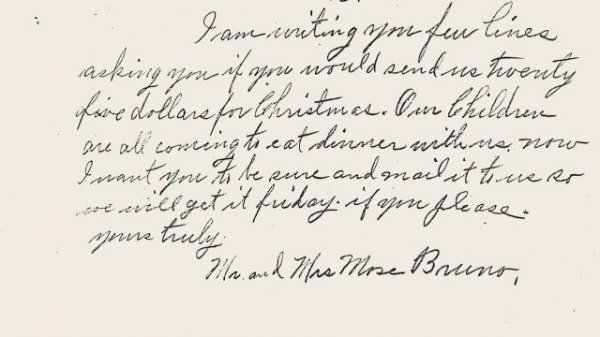 I am writing you few lines
asking you if you would send us twenty
five dollars for Christmas. Our Children
are all coming to eat dinner with us. now
I want you to be sure and mail it to us so
we will get it friday. if you please.
yours truly
Mr. and Mrs Mose Bruno,